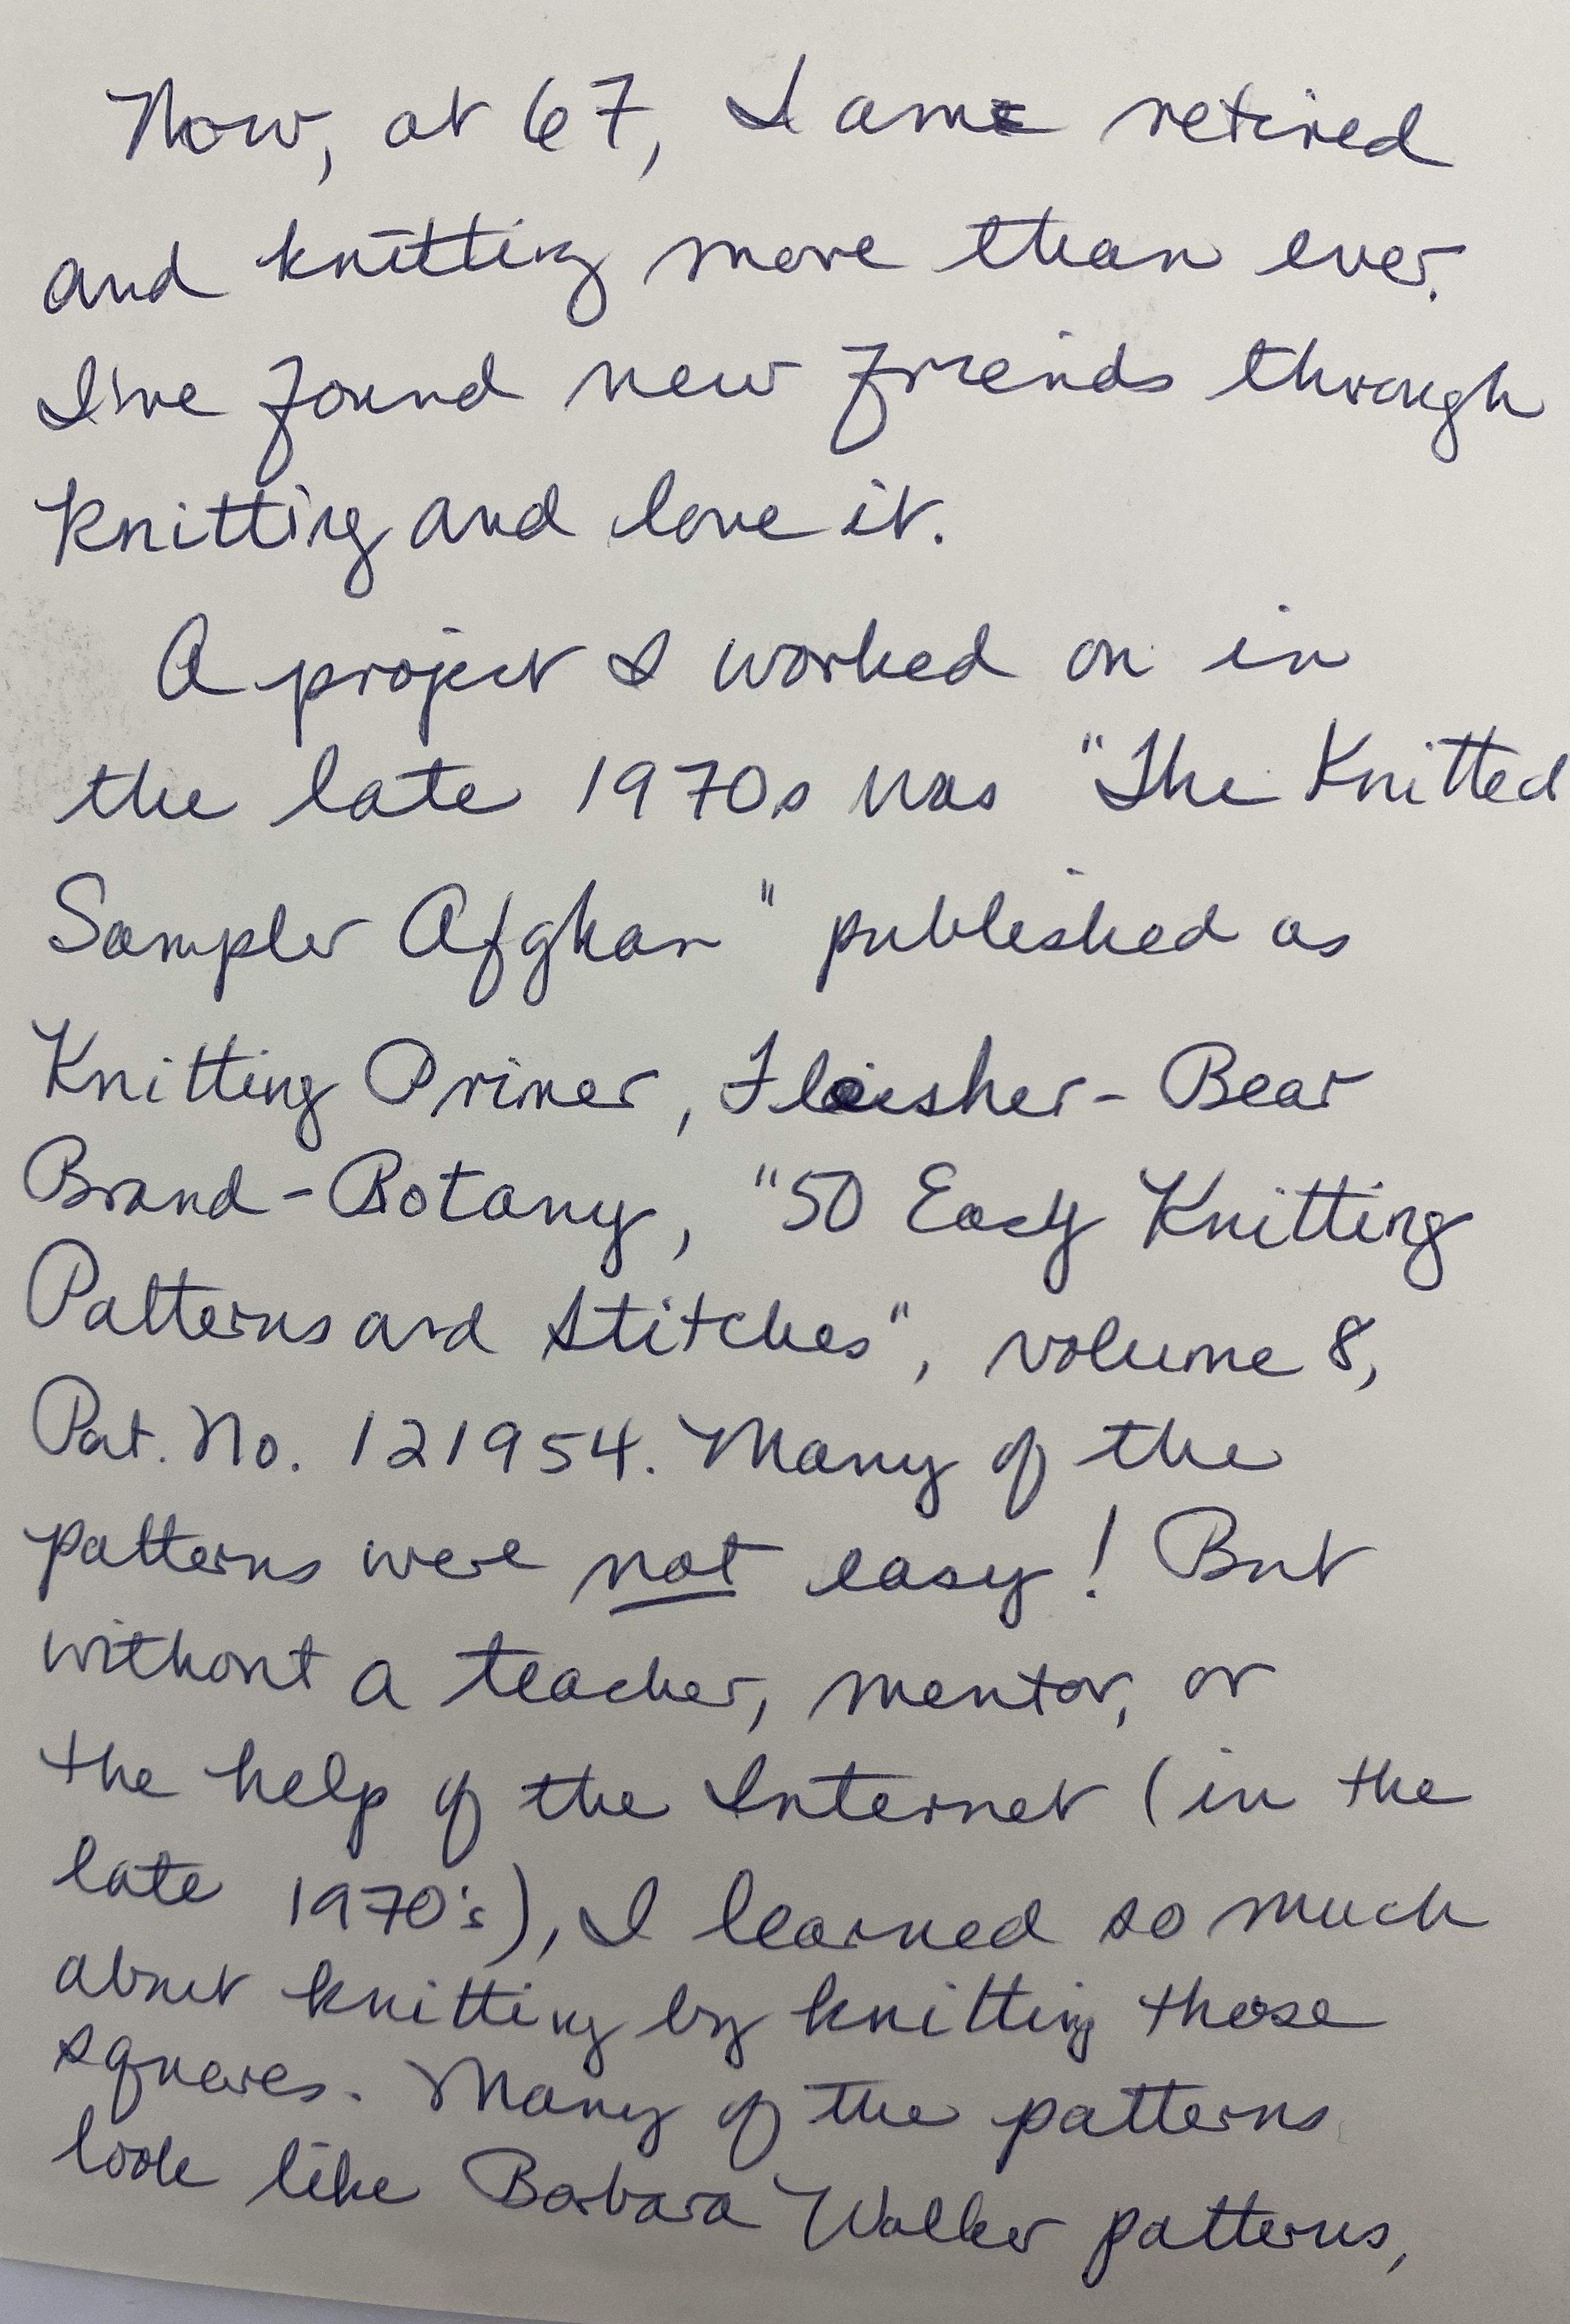 Now, at 67, I am retired
and knitting more than ever.
I've found new friends through
knitting and love it.
A project I worked on in
the late 1970s was "The Knitted
Sampler Afghan" published as
Knitting Primer, Fleisher-Bear
Brand-Botany, "50 Easy Knitting
Patterns and Stitches", volume 8,
Pat. No. 121954. Many of the
patterns were not easy! But
without a teacher, mentor, or
the help of the Internet (in the
late 1970's), I learned so much
about knitting by knitting those
squares. Many of the patterns
look like Barbara Walker patterns,